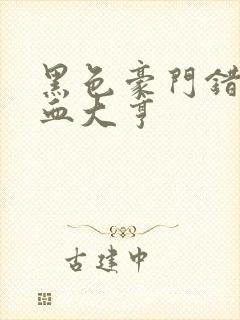 黑色豪門錯
血大亨
古建中